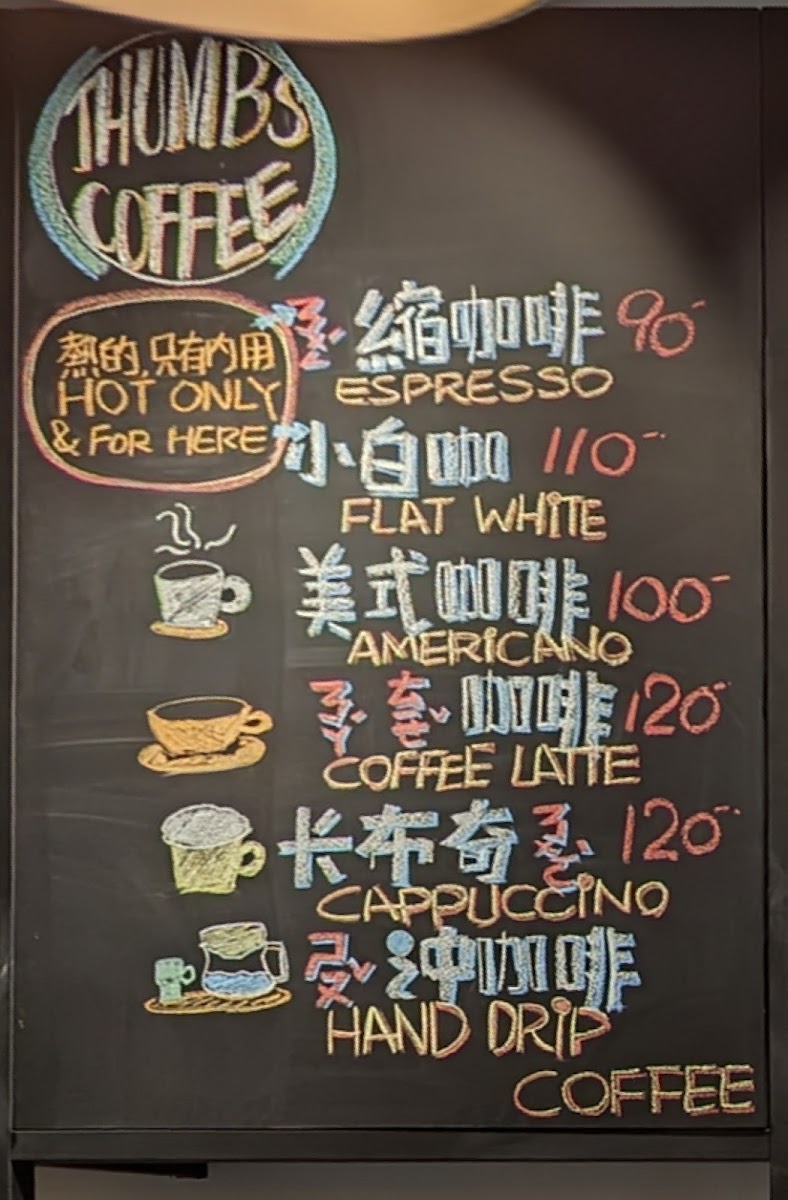 THUMBS
COFFEE
熱的,只有內用
HOT ONLY
& FOR HERE
縮咖啡 90-
ESPRESSO
小白咖 110-
FLAT WHITE
美式咖啡 100-
AMERICANO
ㄋㄚˊ ㄊㄧㄝˇ 咖啡 120-
COFFEE LATTE
卡布奇 120-
CAPPUCCINO
ㄕㄡˇ 沖咖啡
HAND DRIP
COFFEE